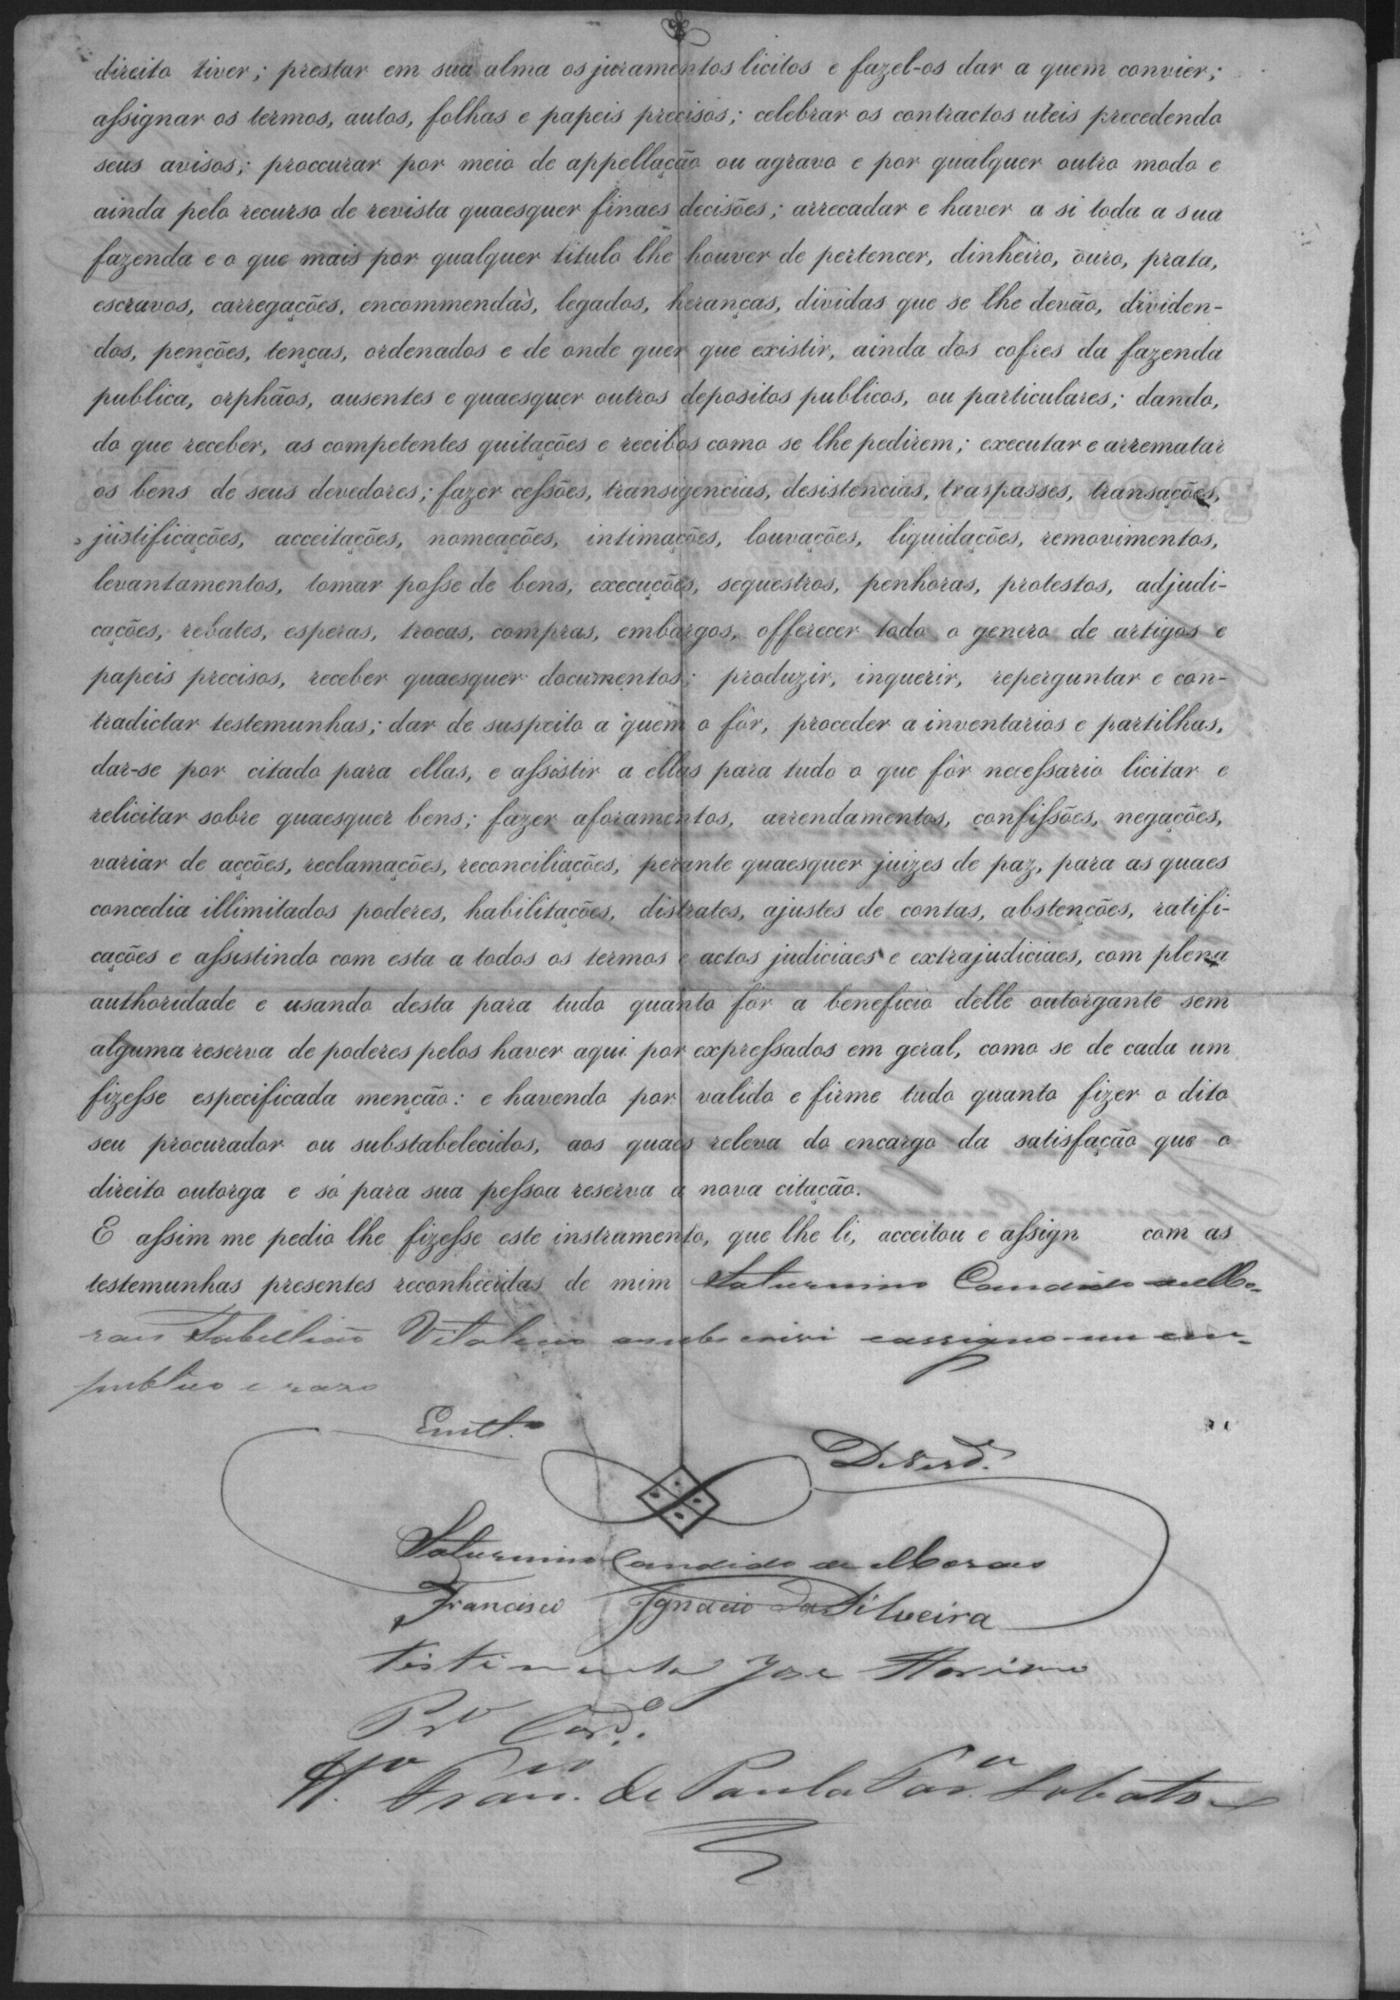 direito tiver; prestar em sua alma os juramentos licitos e fazel-os dar a quem convier;
assignar os termos, autos, folhas e papeis precisos; celebrar os contractos uteis precedendo
seus avisos; proccurar por meio de appellação ou agravo e por qualquer outro modo e
ainda pelo recurso de revista quaesquer finaes decisões; arrecadar e haver a si toda a sua
fazenda e o que mais por qualquer titulo lhe houver de pertencer, dinheiro, ouro, prata,
escravos, carregações, encommendas, legados, heranças, dividas que se lhe devão, dividen-
dos, penções, tenças, ordenados e de onde quer que existir, ainda dos cofres da fazenda
publica, orphãos, ausentes e quaesquer outros depositos publicos, ou particulares; dando,
do que receber, as competentes quitações e recibos como se lhe pedirem; executar e arrematar
os bens de seus devedores; fazer cessões, transigencias, desistencias, traspasses, transações,
justificações, acceitações, nomeações, intimações, louvações, liquidações, removimentos,
levantamentos, tomar posse de bens, execuções, sequestros, penhoras, protestos, adjudi-
cações, rebates, esperas, trocas, compras, embargos, offerecer todo o genero de artigos e
papeis precisos, receber quaesquer documentos; produzir, inquerir, reperguntar e con-
tradictar testemunhas; dar de suspeito a quem o fôr, proceder a inventarios e partilhas,
dar-se por citado para ellas, e assistir a ellas para tudo o que fôr necessario licitar e
relicitar sobre quaesquer bens; fazer aforamentos, arrendamentos, confissões, negações,
variar de acções, reclamações, reconciliações, perante quaesquer juizes de paz, para as quaes
concedia illimitados poderes, habilitações, distrates, ajustes de contas, abstenções, ratifi-
cações e assistindo com esta a todos os termos e actos judiciaes e extrajudiciaes, com plena
authoridade e usando desta para tudo quanto fôr a beneficio delle outorgante sem
alguma reserva de poderes pelos haver aqui por expressados em geral, como se de cada um
fizesse especificada menção: e havendo por valido e firme tudo quanto fizer o dito
seu procurador ou substabelecidos, aos quaes releva do encargo da satisfação que o
direito outorga e só para sua pessoa reserva a nova citação.
E assim me pedio lhe fizesse este instramento, que lhe li, acceitou e assign com as
testemunhas presentes reconhecidas de mim Saturnino Candido de Mo-
raes Tabellião Vitalicio a subscrivi e assigno-me em
publico e raso
Em t.º
De verd.e
Saturnino Candido de Moraes
Francisco Ignacio da Silveira
Testimunha José
Fran.co de Paula Lobato